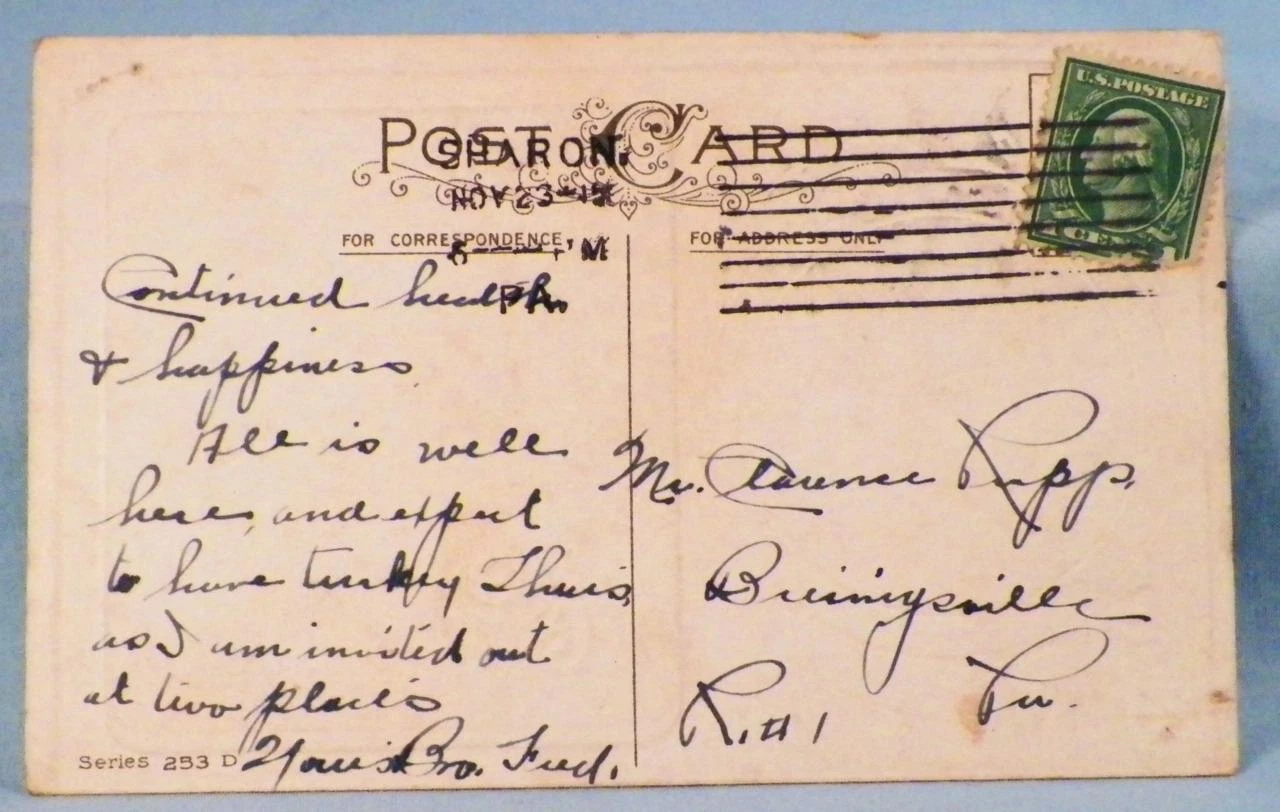 POST CARD
U.S. POSTAGE
SHARON.
NOV 23
PA.
FOR CORRESPONDENCE
FOR ADDRESS ONLY
Continued health
& happiness
All is well
here, and expect
to have turkey Thurs.
as I am invited out
at two places
Your Bro. Fred.
Series 253 D
Mr. Clarence Rupp.
Breinigsville
Pa.
R. # 1